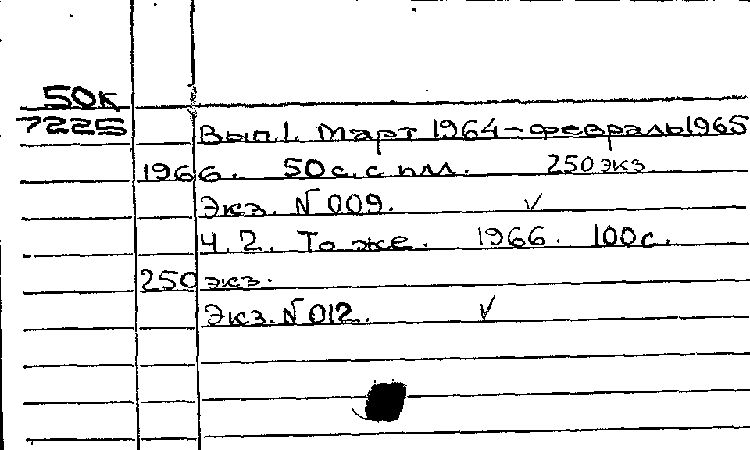 50к
7225
Вып.1. Март 1964-февраль 1965
1966. 50с. с илл. 250 экз
Экз. N 009. ✓
Ч. 2. То же. 1966. 100с.
250 экз.
Экз. N 012. ✓